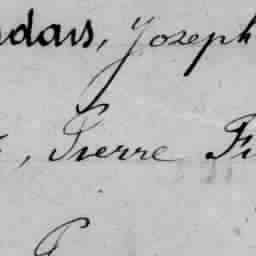 dais, Joseph
, Pierre Fi